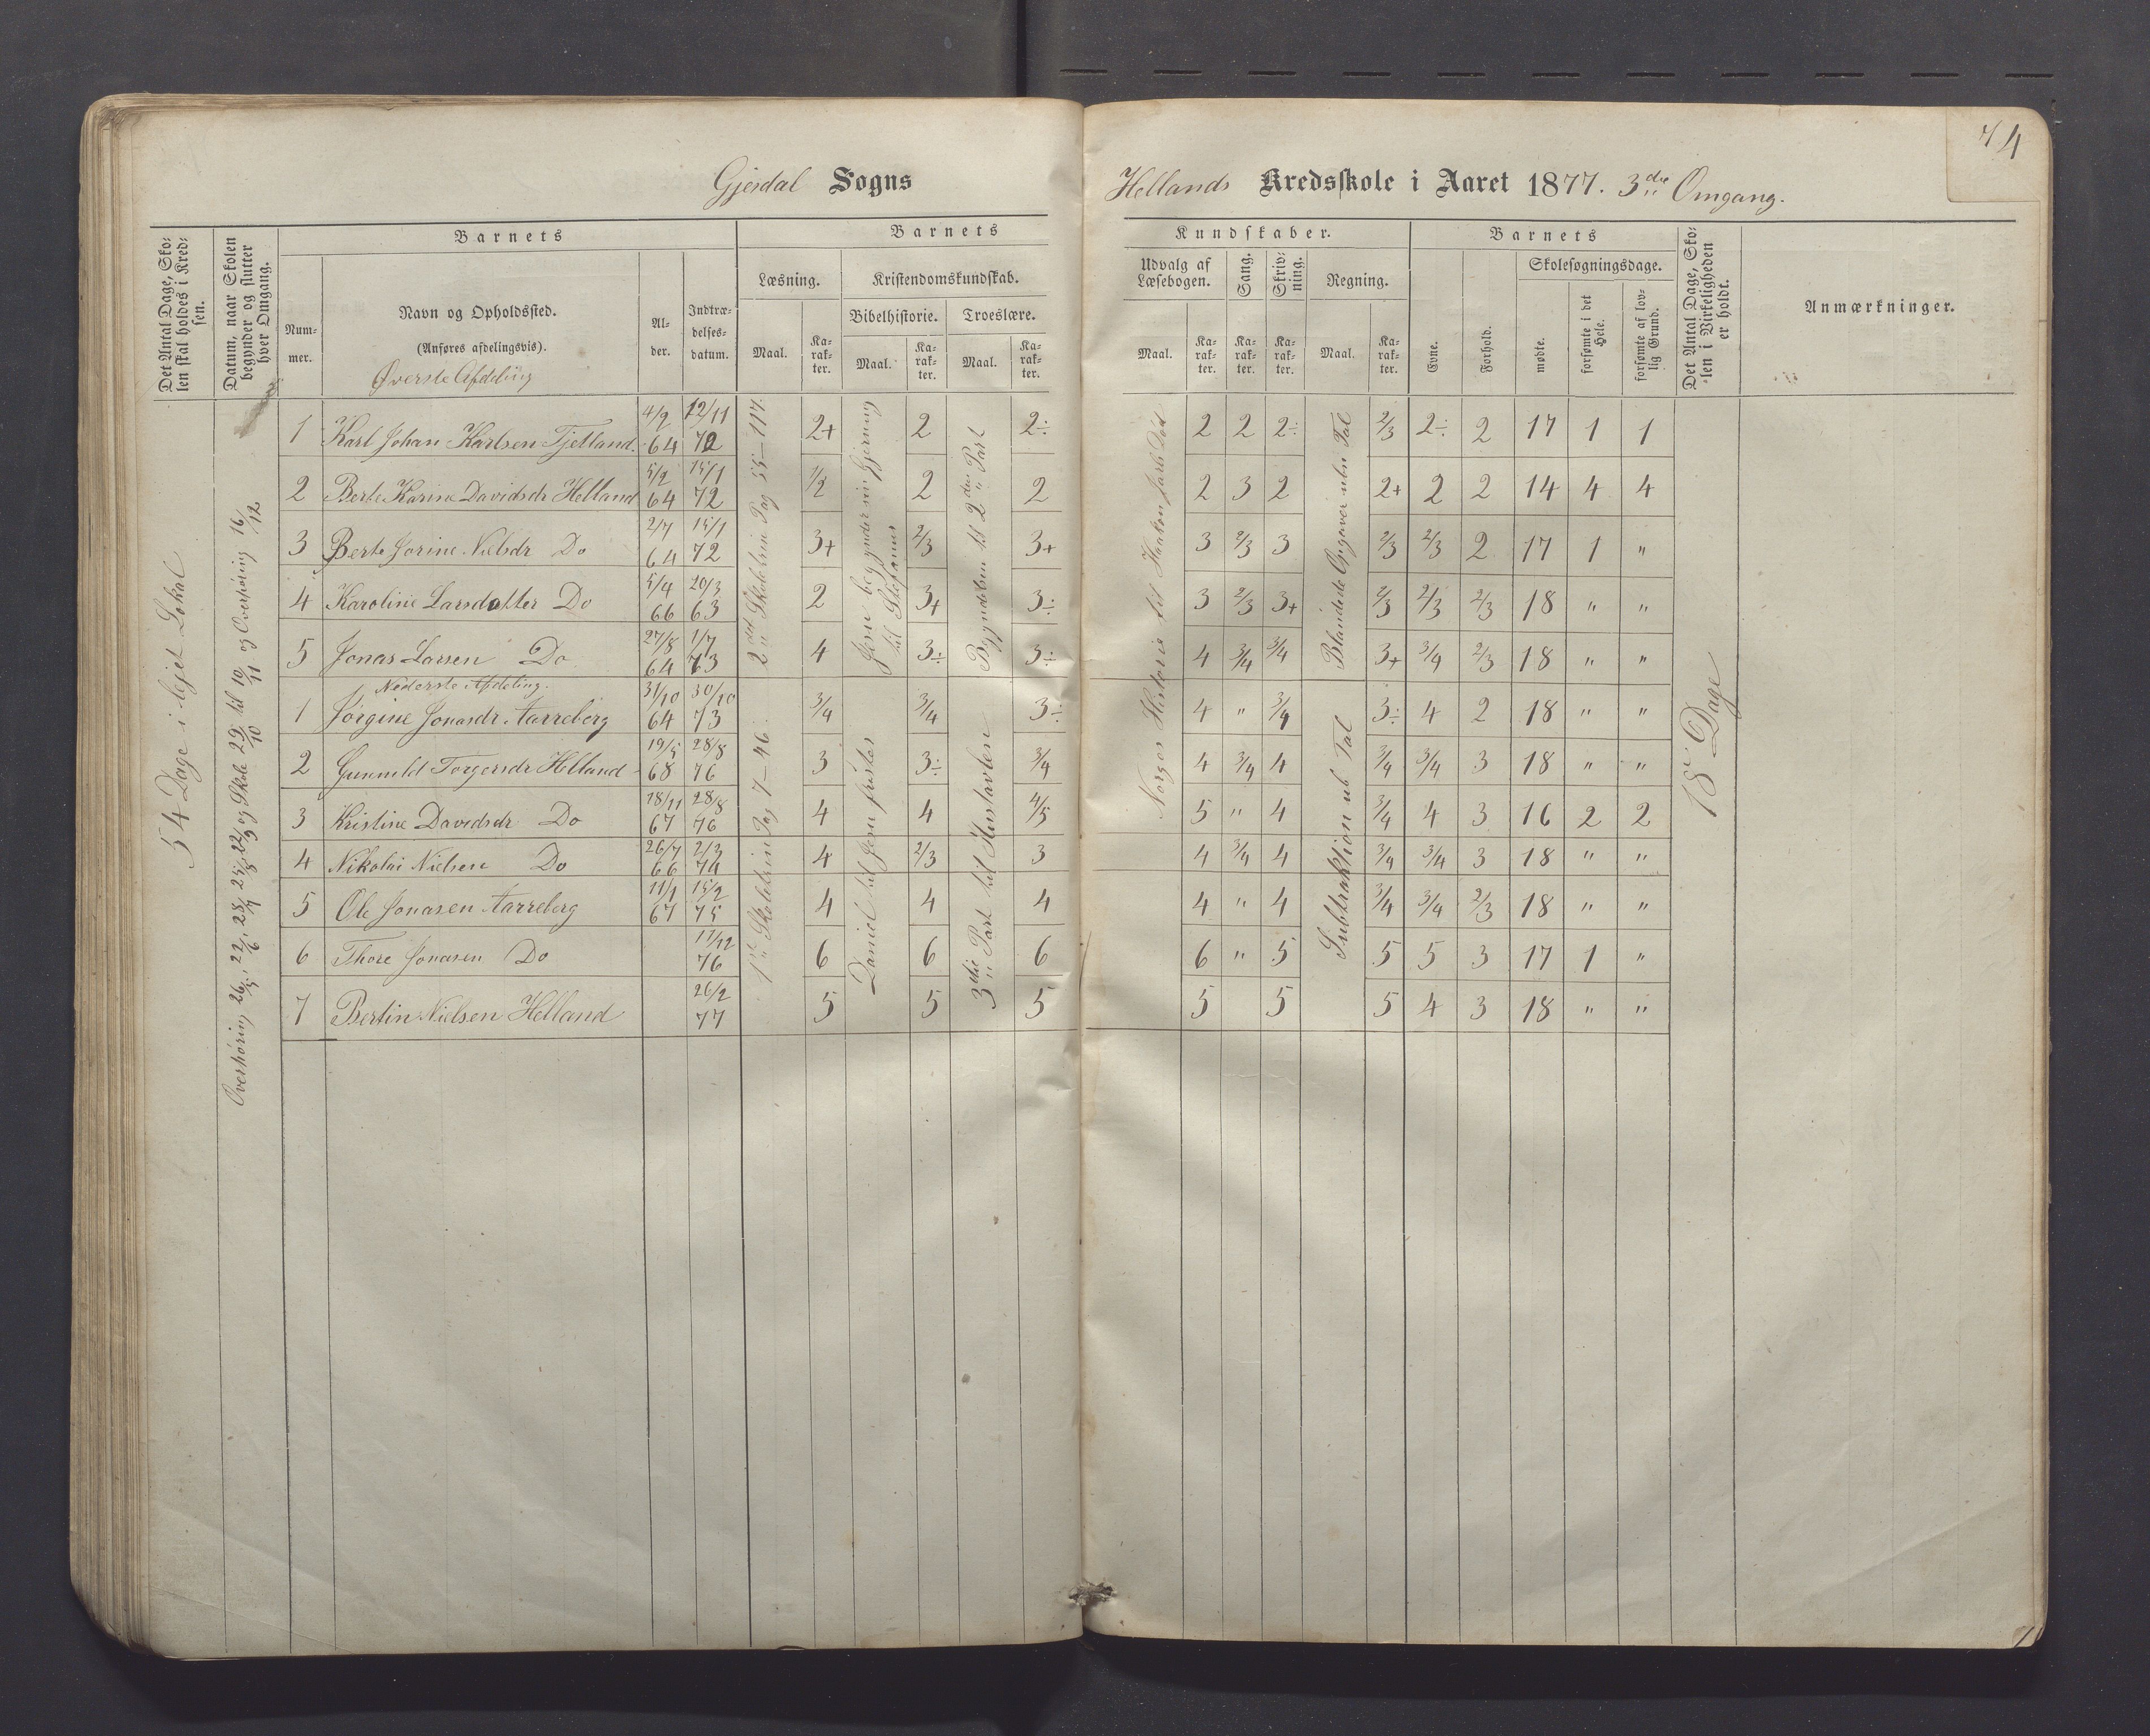 74
Gjesdal Sogns
Hellands Kredsskole i Aaret 1877. 3die Omgang.
Det Antal Dage, Sko-
len skal holdes i Kred-
sen.
Datum, naar Skolen
begynder og slutter
hver Omgang.
Barnets
Num-
mer.
Navn og Opholdssted.
(Anføres afdelingsvis).
Øverste Afdeling
Al-
der.
Indtræ-
delses-
datum.
Barnets
Læsning.
Maal.
Ka-
rak-
ter.
Kristendomskundskab.
Bibelhistorie.
Maal.
Ka-
rak-
ter.
Troeslære.
Maal.
Ka-
rak-
ter.
Kundskaber.
Udvalg af
Læsebogen.
Maal.
Ka-
rak-
ter.
Sang.
Ka-
rak-
ter.
Skriv-
ning.
Ka-
rak-
ter.
Regning.
Maal.
Ka-
rak-
ter.
Barnets
Evne.
Forhold.
Skolesøgningsdage.
mødte.
forsømte i det
Hele.
forsømte af lov-
lig Grund.
Det Antal Dage, Sko-
len i Virkeligheden
er holdt.
Anmærkninger.
54 Dage i lejet Lokal
og Skole 29/10 til 10/11 og Overhøring 16/12
2det Skoletrin Pag 55-117.
Jesu begynder sin Gjerning
til Stefanus
Begyndelsen til 2den Part
Norges Historie til Haakon Jarls Død
Blandede Opgaver
1 Karl Johan Karlsen Tjetland. 4/2 64 12/11 72 2+ 2 2÷ 2 2 2÷ 2/3 2÷ 2 17 1 1
2 Berte Karine Davidsdr Helland 5/2 64 15/1 72 1/2 2 2 2 3 2 2+ 2 2 14 4 4
3 Berte Jorine Nielsdr Do 2/7 64 15/1 72 3+ 2/3 3+ 3 2/3 3 2/3 2/3 2 17 1 "
4 Karoline Larsdatter Do 5/4 66 20/3 63 2 3+ 3÷ 3 2/3 3+ 2/3 2/3 2/3 18 " "
5 Jonas Larsen Do 27/8 64 1/7 73 4 3÷ 3÷ 4 3/4 3/4 3+ 3/4 2/3 18 " "
Nederste Afdeling.
1ste Skoletrin Pag 7-46.
Daniel til Jesu fristes
3die Part til Hustavlen
Subtraktion
18 Dage
1 Jørgine Jonasdr Aarreberg 31/10 64 30/10 73 3/4 3/4 3÷ 4 " 3/4 3÷ 4 2 18 " "
2 Gunnild Torgersdr Helland 19/5 68 28/8 76 3 3÷ 3/4 4 3/4 4 3/4 3/4 3 18 " "
3 Kristine Davidsdr Do 18/11 67 28/8 76 4 4 4/5 5 " 4 3/4 4 3 16 2 2
4 Nikolai Nielsen Do 26/7 66 2/3 74 4 2/3 3 4 3/4 4 3/4 3/4 3 18 " "
5 Ole Jonasen Aarreberg 11/1 67 15/2 75 4 4 4 4 " 4 3/4 3/4 2/3 18 " "
6 Thore Jonasen Do 17/12 76 6 6 6 6 " 5 5 5 3 17 1 "
7 Bertin Nielsen Helland 26/2 77 5 5 5 5 5 5 4 3 18 " "